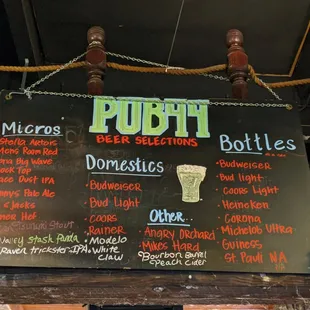 PUB44
BEER SELECTIONS
Micros
Stella Artois
Big Wave
Pale Ale
& Jacks
Stout
Navry stash Panda
Raven trickster-IPA
Domestics
• Budweiser
• Bud Light
• Coors
• Rainer
• Modelo
• White
Claw
Other...
• Angry Orchard
• Mikes Hard
• Bourbon Barrel
Peach Cider
Bottles
• Budweiser
• Bud light
• Coors Light
• Heineken
• Corona
• Michelob Ultra
• Guiness
St Pauli NA